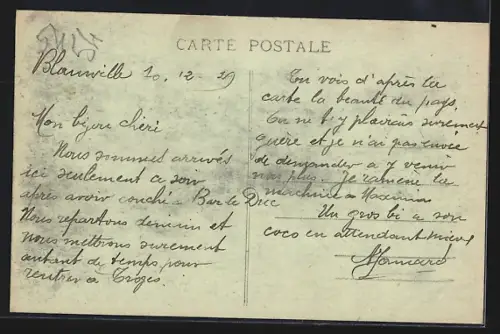 CARTE POSTALE
Blainville 20.12-29
Mon bijou chéri
Nous sommes arrivés
ici seulement a soir
après avoir couché a Bar le Duc
Nous repartons demain et
nous mettrons surement
autant de temps pour
rentrer à Troyes.
Tu vois d'après la
carte la beauté du pays.
Tu ne t'y plairais surement
guère et je n'ai pas envie
de demander a y venir
non plus. Je ramène la
machine a Maxima
Un gros bi a son
coco en attendant mieux